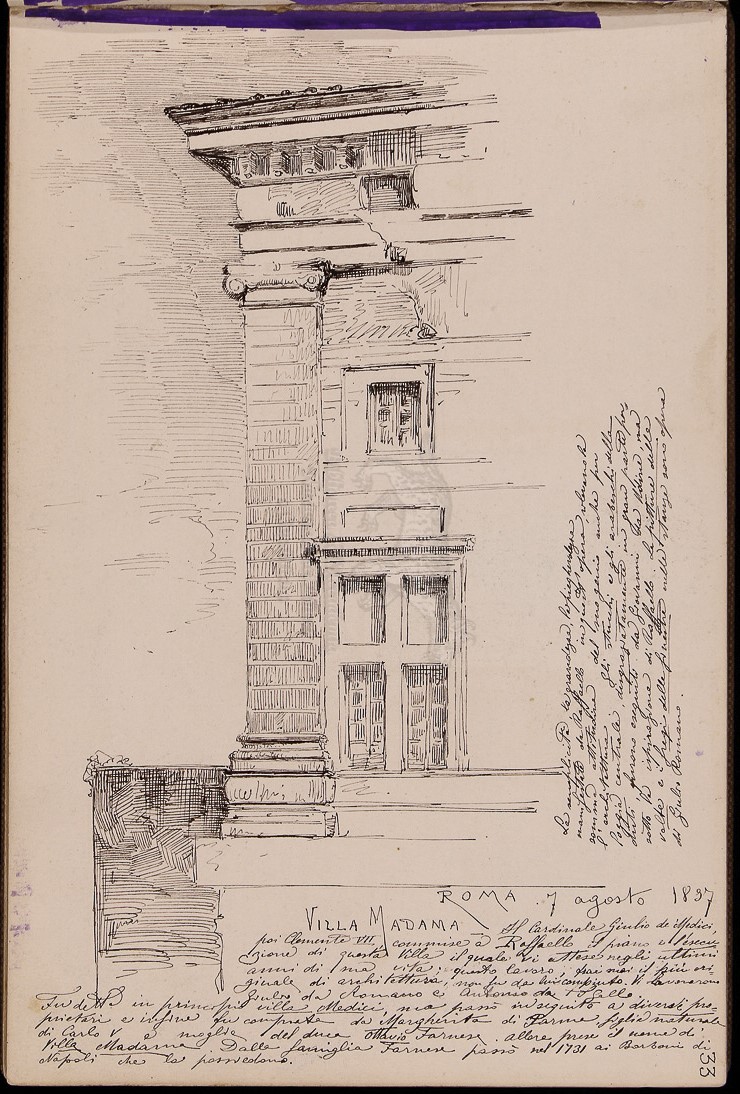 ROMA 7 agosto 1897
VILLA MADAMA Il Cardinale Giulio de' Medici,
poi Clemente VII, commise à Raffaello il piano e l'esecu-
zione di questa Villa il quale vi attese negli ultimi
anni di sua vita; questo lavoro, forse il più ori-
ginale di architettura, non fu da lui compiuto. Vi lavorarono
Giulio Romano e Antonio da S. Gallo.
Fu detta in principio villa Medici, ma passò in seguito a diversi pro-
prietari e infine fu comprata da Margherita di Parma, figlia naturale
di Carlo V e moglie del duca Ottavio Farnese, allora prese il nome di
Villa Madama. Dalla famiglia Farnese passò nel 1731 ai Borboni di
Napoli che la possedono.
33
La semplicità, la grandezza,
manifestate da Raffaello in quest'opera
sommo attribuire del
l'architettura gli stucchi e gli arabeschi della
loggia centrale disgraziatamente in gran parte per-
duti furono eseguiti da Giovanni da Udine ma
sotto la ispirazione di Raffaello. Le pitture delle
volte e i fregi delle nelle stanze sono opera
di Giulio Romano.